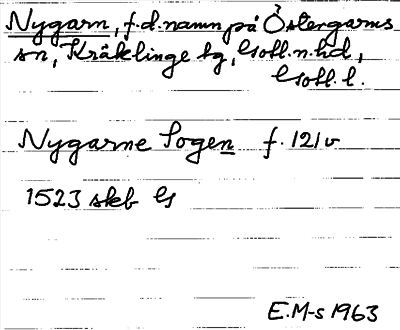 Nygarn, f.d. namn på Östergarns
sn, Kräklinge tg, Gotl. n. hd,
Gotl. l.
Nygarne Sogen f. 121v
1523 skb G
E.M-s 1963